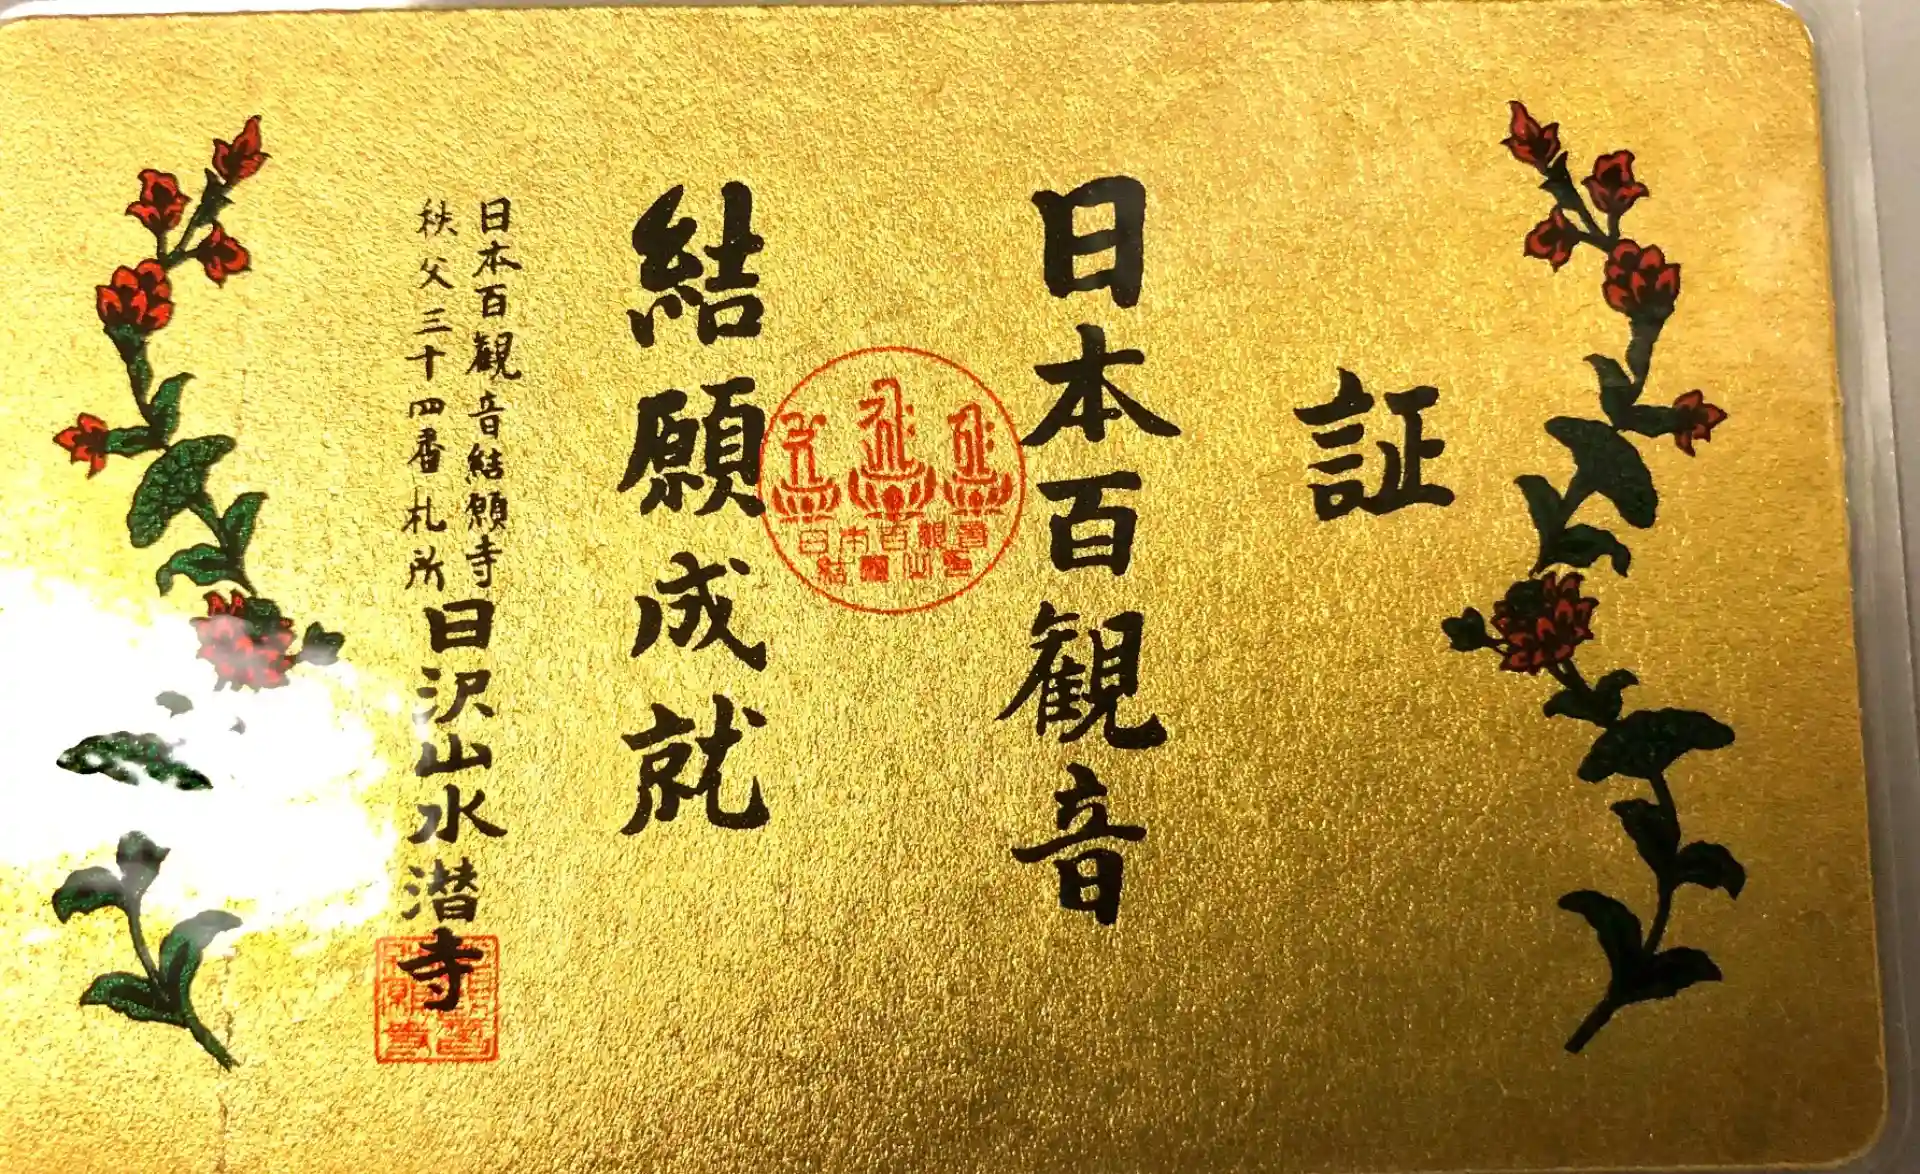 証
日本百観音
日本百観音
結願
結願成就
日本百観音結願寺
秩父三十四番札所
日沢山水潜寺